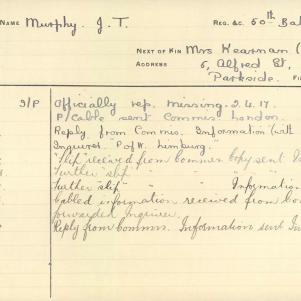 NAME Murphy. J. T. REG. &C. 50th Bat
NEXT OF KIN Mrs Kearnan (
ADDRESS 5, Alfred St,
Parkside.
S/P Officially rep. missing. 2.4.17.
P/Cable sent Commrs. London.
Reply from Commrs. Information (with
Inquirer. "P of W. Limburg."
"Slip received from Commrs copy sent In
Further "slip" " "
Further "slip" " " Information
Cabled information received from Co
forwarded inquirer.
Reply from Commrs. Information sent In